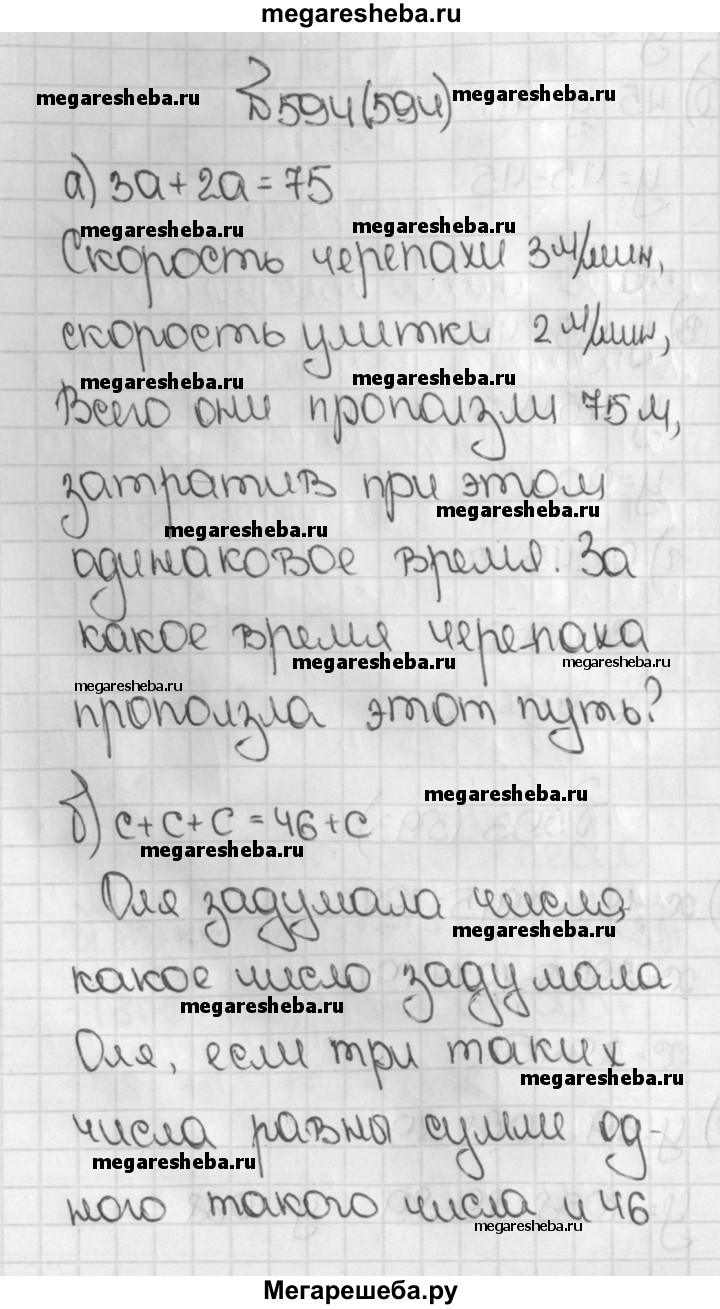 megaresheba.ru
megaresheba.ru №594(594) megaresheba.ru
а) 3а + 2а = 75
megaresheba.ru megaresheba.ru
Скорость черепахи 3 м/мин,
скорость улитки 2 м/мин,
megaresheba.ru megaresheba.ru
Всего они проползли 75 м,
затратив при этом
megaresheba.ru
megaresheba.ru
одинаковое время. За
какое время черепаха
megaresheba.ru megaresheba.ru
megaresheba.ru
проползла этот путь?
megaresheba.ru
б) с + с + с = 46 + с
megaresheba.ru
Оля задумала число
megaresheba.ru
какое число задумала
megaresheba.ru
Оля, если три таких
megaresheba.ru
числа равны сумме од-
megaresheba.ru
ного такого числа и 46
megaresheba.ru
Мегарешеба.ру